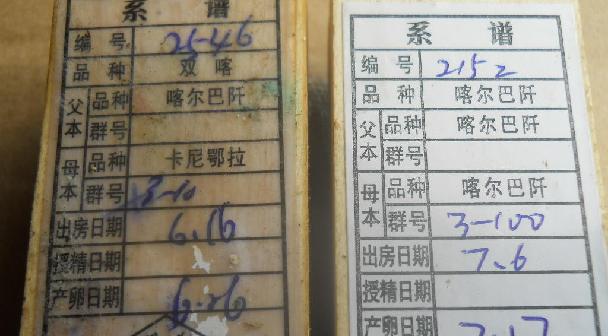 系 谱
编 号 25-46
品 种 双 喀
父本 品种 喀尔巴阡
群号
母本 品种 卡尼鄂拉
群号 3-10
出房日期 6.16
授精日期
产卵日期 6.26
系 谱
编 号 2152
品 种 喀尔巴阡
父本 品种 喀尔巴阡
群号
母本 品种 喀尔巴阡
群号 3-100
出房日期 7.6
授精日期
产卵日期 7.17